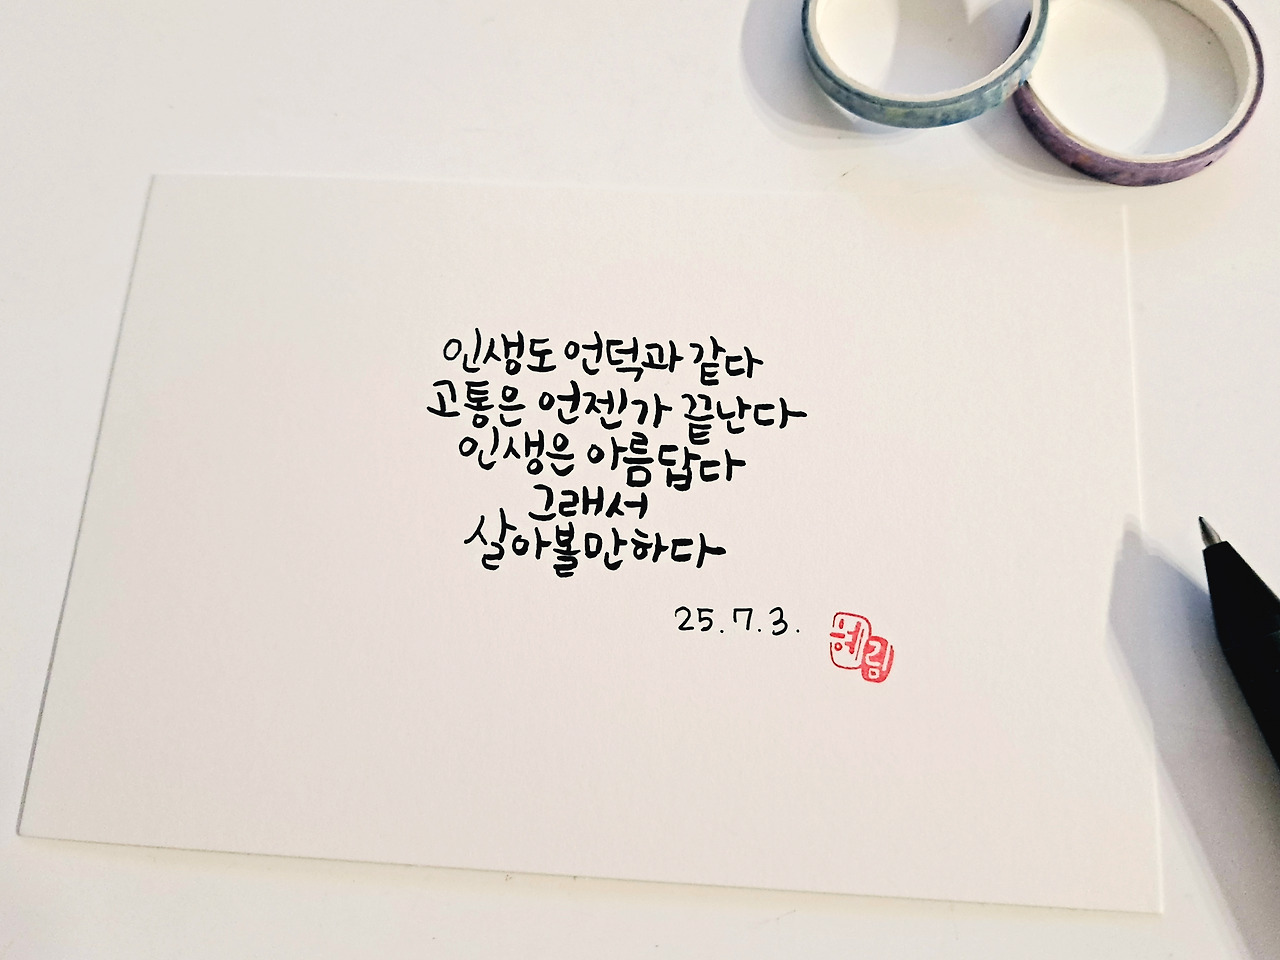 인생도 언덕과 같다
고통은 언젠가 끝난다
인생은 아름답다
그래서
살아볼만하다
25.7.3. 혜림